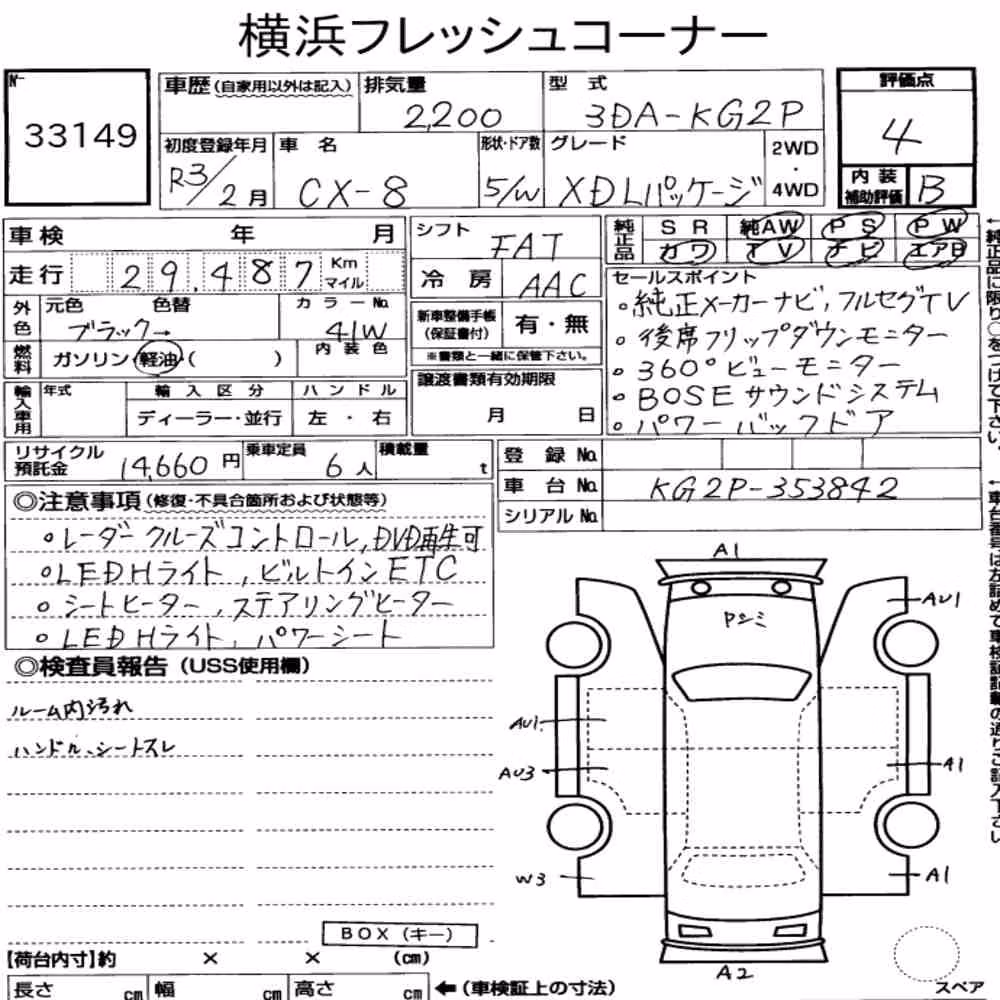 横浜フレッシュコーナー
No
33149
車歴 (自家用以外は記入)
排気量
2,200
型 式
3DA-KG2P
評価点
4
内 装
補助評価
B
初度登録年月
R3/2月
車 名
CX-8
形状・ドア数
5/W
グレード
XDLパッケージ
2WD
・
4WD
車検 年 月
シフト
FAT
純正品
S R 純AW P S P W
カワ T V ナビ エアB
走行 29,487 Km
マイル
冷 房
AAC
外色
元色 色替
ブラック→
カラーNo.
41W
新車整備手帳
(保証書付)
有・無
※書類と一緒に保管下さい。
燃料
ガソリン・軽油 ( )
内 装 色
輸入車用
年式
輸 入 区 分
ディーラー・並行
ハ ン ド ル
左 ・ 右
譲渡書類有効期限
月 日
セールスポイント
。純正メーカーナビ,フルセグTV
。後席フリップダウンモニター
。360°ビューモニター
。BOSEサウンドシステム
。パワーバックドア
←純正品に限り○をつけて下さい。
リサイクル
預託金
14,660 円
乗車定員
6 人
積載量
t
登 録 No.
車 台 No.
KG2P-353842
シリアル No.
←車台番号は左詰めで車検証記載の通りご記入下さい。
◎注意事項 (修復・不具合箇所および状態等)
。レーダークルーズコントロール,DVD再生可
。LEDHライト,ビルトインETC
。シートヒーター,ステアリングヒーター
。LEDHライト,パワーシート
◎検査員報告 (USS使用欄)
ルーム内汚れ
ハンドル、シートスレ
A1
AU1
Pシミ
AU1
AU3
A1
W3
A1
A2
スペア
BOX (キー)
【荷台内寸】約 × × (cm)
長さ cm 幅 cm 高さ cm ←(車検証上の寸法)